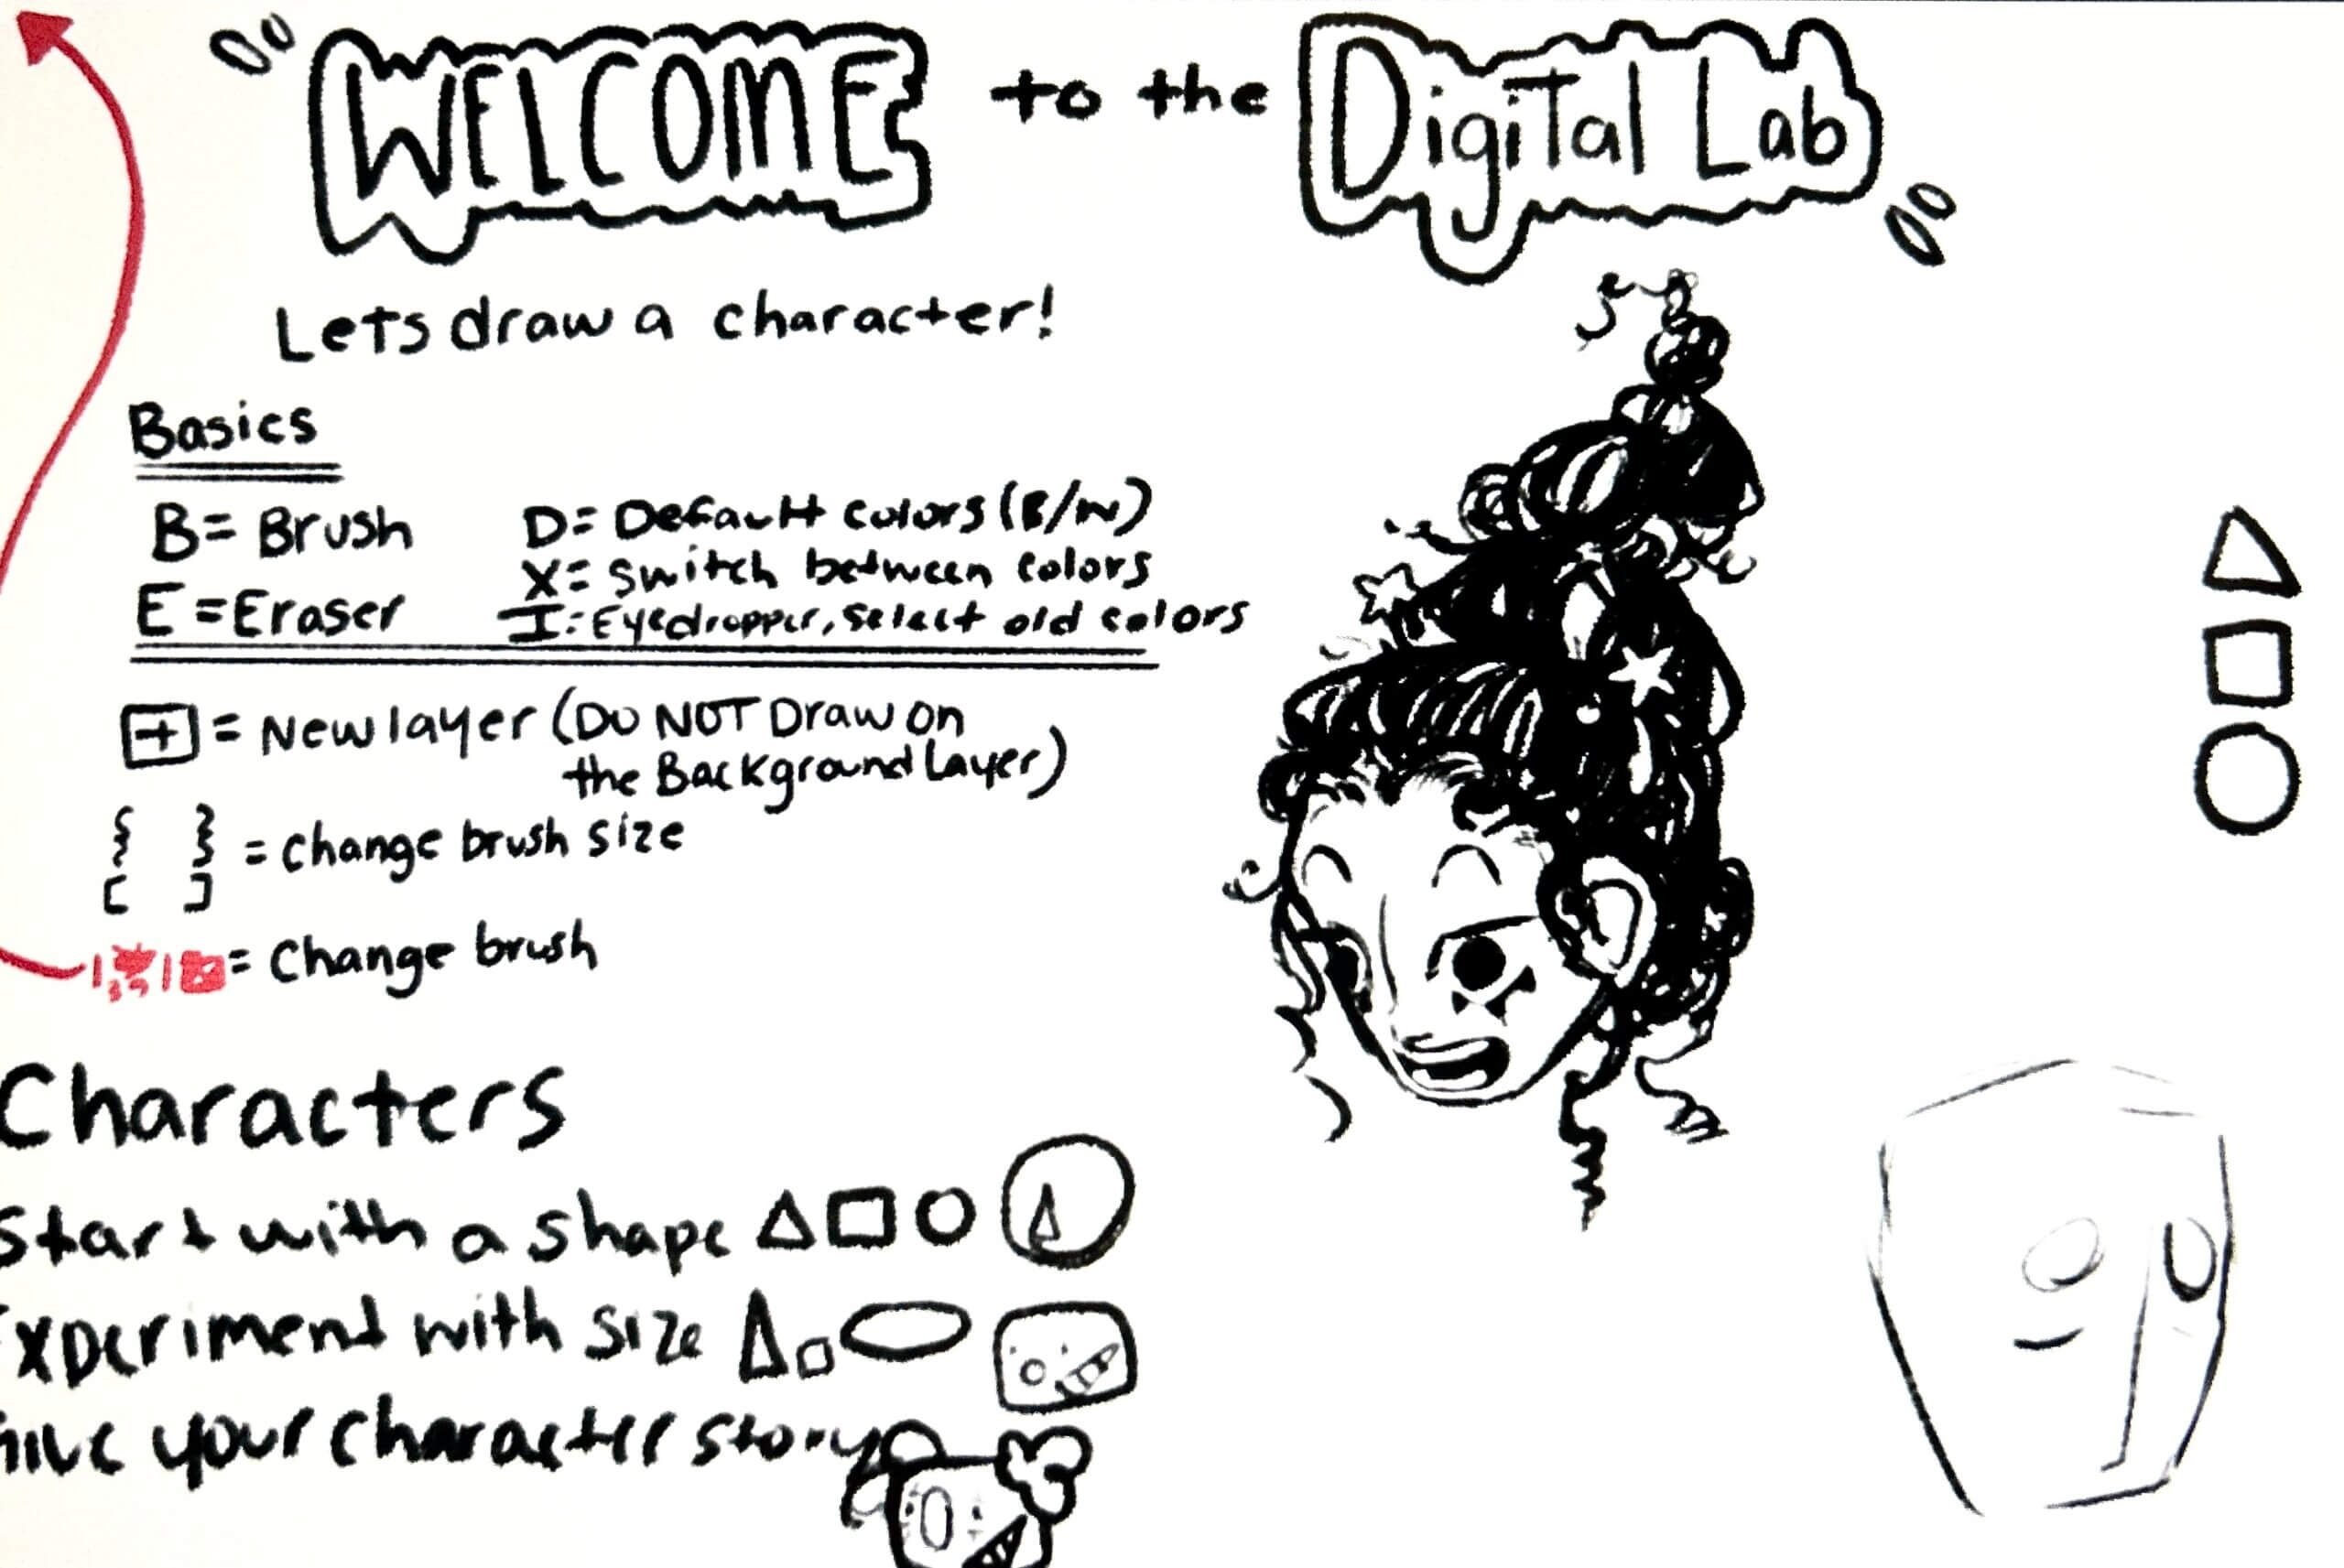 WELCOME to the Digital Lab
Lets draw a character!
Basics
B= Brush
E=Eraser
D= Default colors (B/W)
X= Switch between colors
I= Eyedropper, select old colors
+ = New layer (Do NOT Draw on
the Background Layer)
{ } [ ] = change brush size
= Change brush
Characters
Start with a shape
Experiment with size
your character story